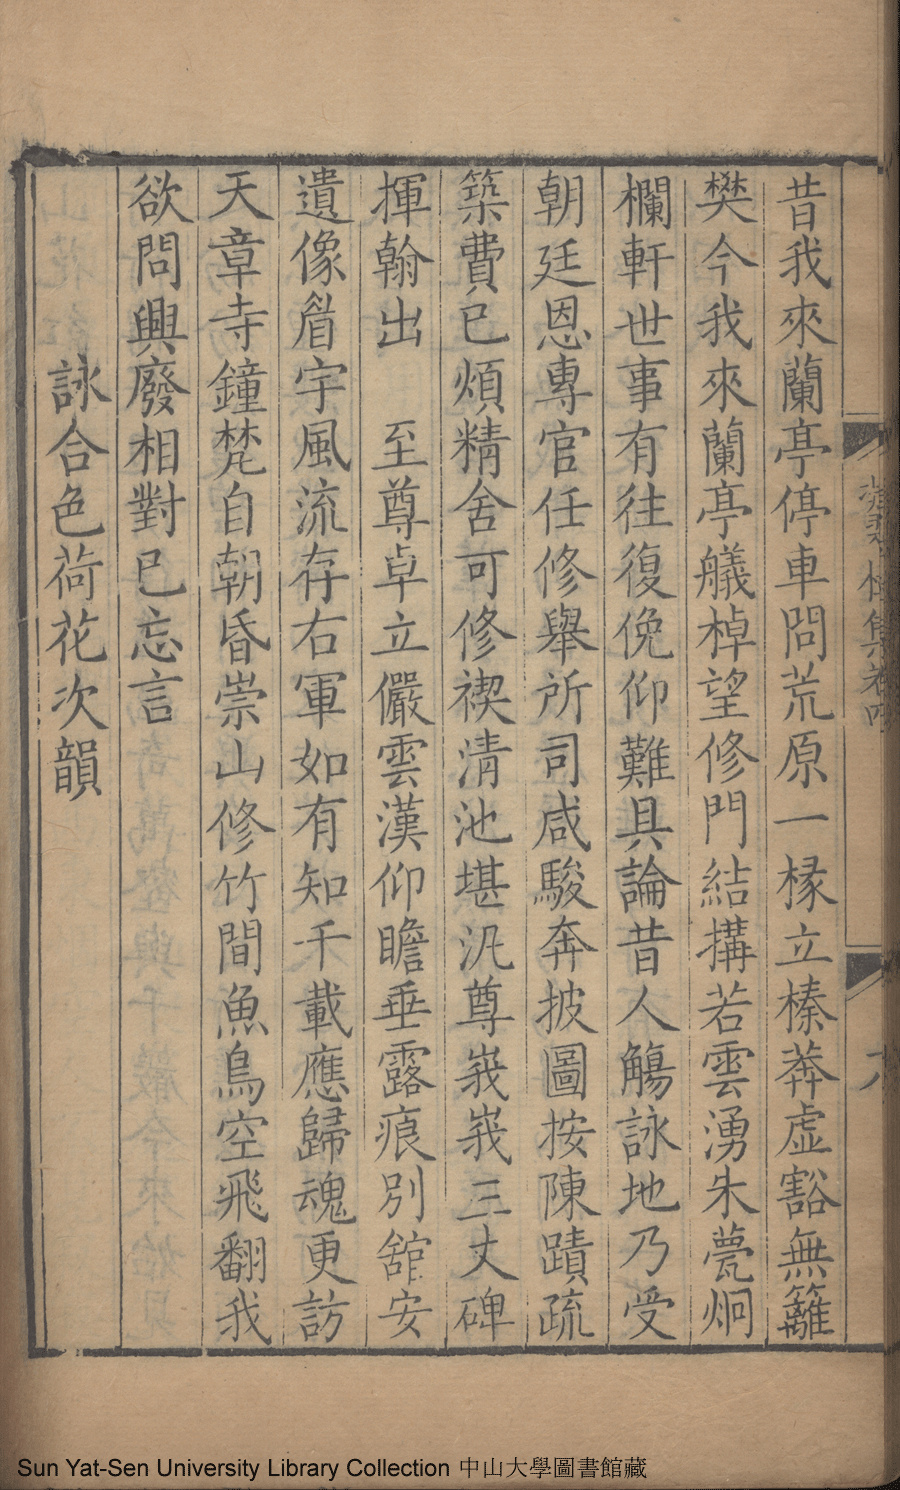 昔我來蘭亭停車問荒原一椽立榛莽虛豁無籬
樊今我來蘭亭艤棹望修門結搆若雲湧朱甍炯
欄軒世事有往復俛仰難具論昔人觴詠地乃受
朝廷恩專官任修舉所司咸駿奔披圖按陳蹟疏
築費已煩精舍可修禊清池堪汎尊峩峩三丈碑
揮翰出　至尊卓立儼雲漢仰瞻垂露痕別舘安
遺像眉宇風流存右軍如有知千載應歸魂更訪
天章寺鐘梵自朝昏崇山修竹間魚鳥空飛翻我
欲問興廢相對已忘言
詠合色荷花次韻
Sun Yat-Sen University Library Collection 中山大學圖書館藏